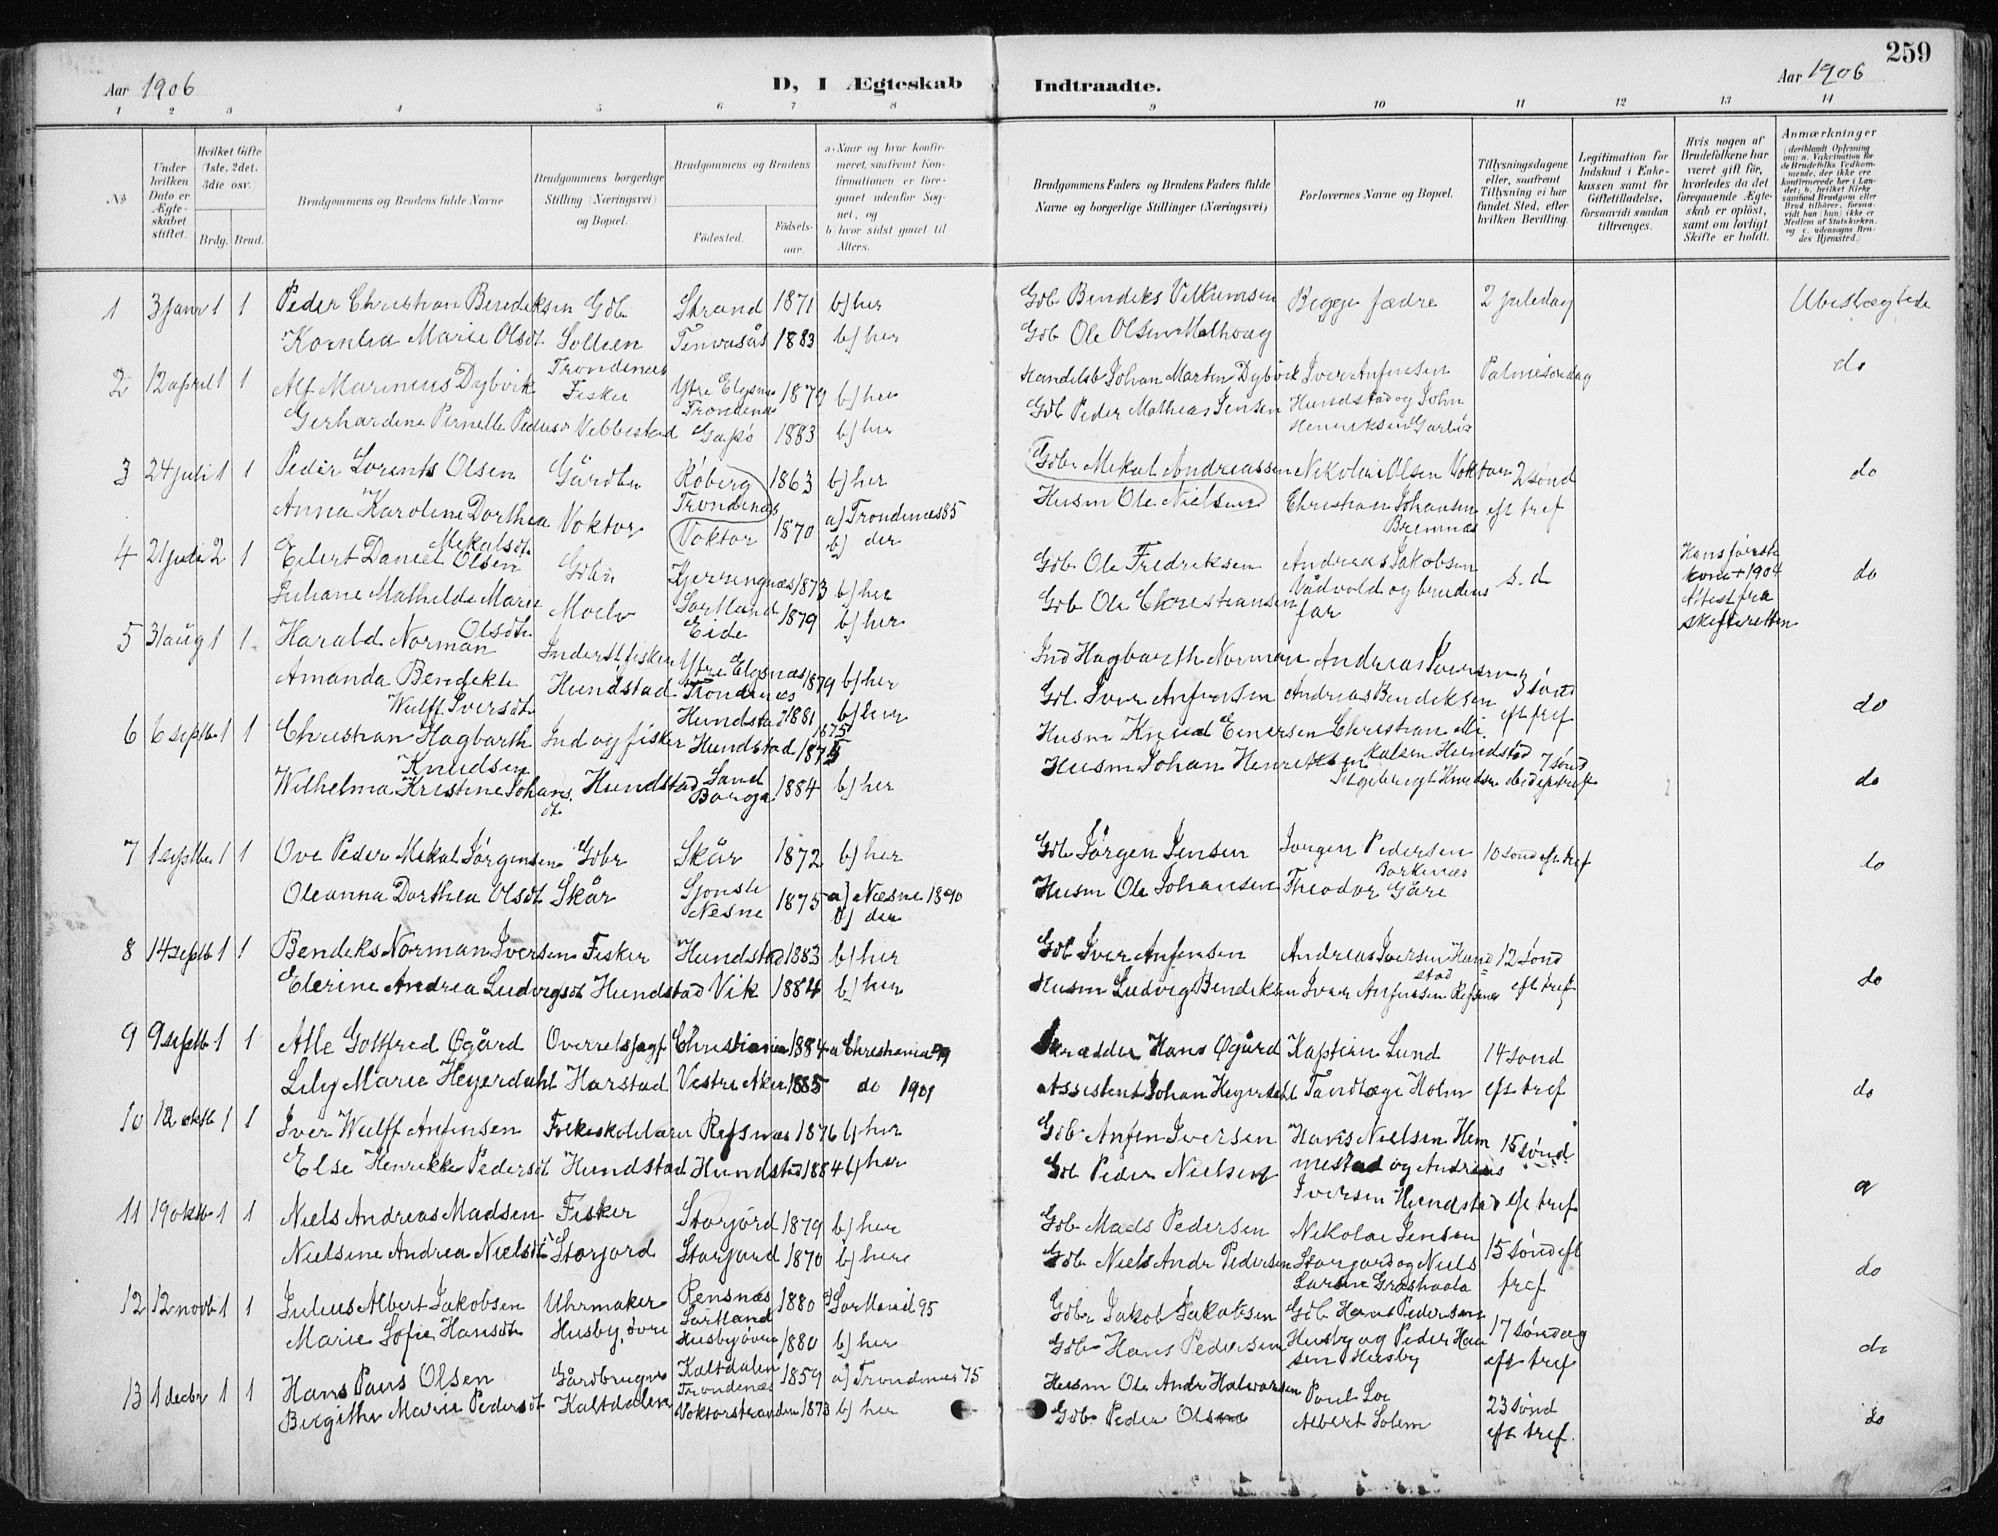 259
Aar 1906
D, I Ægteskab
Indtraadte.
Aar 1906
1 2 3 4 5 6 7 8 9 10 11 12 13 14
No
Under hvilken Dato er Ægteskabet stiftet.
Hvilket Gifte (1ste, 2det, 3die osv.)
Brdg. Brud.
Brudgommens og Brudens fulde Navne
Brudgommens borgerlige Stilling (Næringsvei) og Bopæl.
Brudgommens og Brudens
Fødested.
Fødselsaar.
a. Naar og hvor konfirmeret, saafremt Konfirmationen er foregaaet udenfor Sognet, og
b. hvor sidst gaaet til Alters.
Brudgommens Faders og Brudens Faders fulde Navne og borgerlige Stillinger (Næringsvei)
Forlovernes Navne og Bopæl.
Tillysningsdagene eller, saafremt Tillysning ei har fundet Sted, efter hvilken Bevilling.
Legitimation for Indskud i Enkekassen samt for Giftetilladelse, forsaavidt saadan tiltrænges.
Hvis nogen af Brudefolkene har været gift før, hvorledes da det foregaaende Ægteskab er opløst, samt om lovligt Skifte er holdt.
Anmærkninger (deriblandt Oplysning om: a. Vakcination for de Brudefolks Vedkommende, der ikke ere konfirmerede her i Landet; b. hvilket Kirkesamfund Brudgom eller Brud tilhører, forsaavidt han (hun) ikke er Medlem af Statskirken, og c. udensogns Brudes Hjemsted.)
1 3 janr 1 1 Peder Christian Bendeksen Gdb Strand 1871 b) her Gdb Bendeks Begge fædre 2 juledag Ubeslægtede
Kornelia Marie Olsdt Sollien Tennesås 1883 b) her Gdb Ole Olsen
2 12 april 1 1 Alf Marinius Dybvik Trondenes Fisker Ytre Elgsnes Trondenes 1879 b) her Handelsb Johan Martin Dybvik Iver Anfinsen Palmesøndag do
Gerhardine Pernelle Pedersd Vebbestad Gapø 1883 b) her Gdb Peder Mathias Jensen Hundstad og John Henriksen
3 24 juli 1 1 Peder Lorents Olsen Gårdbr Røberg Trondenes 1863 b) her Gdbr Mekal Andreassen Nikolai Olsen Voktor 2 sønd do
Anna Karoline Dorthea Mekalsdt Voktor Voktor 1870 a) Trondenes 85 b) der Husm Ole Nielsen Christian Johansen Bremnæs eft tref
4 21 juli 2 1 Eilert Daniel Olsen Gdbr Kjerringnæs Sortland 1873 b) her Gdb Ole Fredriksen Andreas Jakobsen s.d Hans første kone + 1904 Attest fra skifteretten do
Juliane Mathilde Marie Olsdtr Moelv Eide 1879 b) her Gdb Ole Christiansen Vådvold og brudens far
5 31 aug 1 1 Harald Norman Inderst fisker Ytre Elgsnæs Trondenes 1879 b) her Ind Hagbarth Norman Andreas Iversen 3 sønd
Amanda Bendekte Wulff Iversdt Hundstad Hundstad 1881 b) her Gdb Iver Anfinsen Andreas Bendiksen eft tref do
6 6 septb 1 1 Christian Hagbarth Knudsen Ind og fisker Hundstad 1875 Husm Knud Einersen Christian Mikalsen Hundstad 7 sønd
Wilhelma Kristine Johansdt. Hundstad Sand 1884 b) her Husm Johan Henriksen Ingebrigt Knudsen ibid eft tref do
7 1 septbr 1 1 Ove Peder Mekal Jørgensen Gdbr Skår 1872 b) her Gdb Jørgen Jensen Jørgen Pedersen Borkenæs 10 sønd eft tref do
Oleanna Dorthea Olsdt Skår Sjonste Nesne 1875 a) Næsne 1890 b) der Husm Ole Johansen Theodor Gåre
8 14 septb 1 1 Bendeks Norman Iversen Fisker Hundstad 1883 b) her Gdb Iver Anfinsen Andreas Iversen Hundstad 12 sønd
Elerine Andrea Ludvigsdt Hundstad Vik 1884 b) her Husm Ludvig Bendiksen Iver Anfinsen Refsnes eft tref do
9 9 septb 1 1 Alle Gottfred Øgård Overretssagf Christiania 1884 a Christiania 99 Skrædder Hans Øgård Kaptein Lund 14 sønd
Lily Marie Heyerdahl Harstad Vestre Aker 1885 do 1901 Assistent Johan Heyerdahl Tandlæge Holm eft tref do
10 12 oktb 1 1 Iver Wulff Anfinsen Folkeskolelærer Refsnæs 1876 b) her Gdb Anfin Iversen Hans Nielsen Hemmestad og Andreas 15 sønd
Else Henrikke Pedersdt Hundstad Hundstad 1884 b) her Gdb Peder Nielsen Iversen Hundstad eft tref a
11 19 oktb 1 1 Niels Andreas Madsen Fisker Storjord 1879 b) her Gdb Mads Pedersen Nikolai Jensen 15 sønd eft
Nielsine Andrea Nielsdt Storjord Storjord 1870 b) her Gdb Niels Andr Pedersen Storjord og Niels Larsen tref do
12 12 novb 1 1 Julius Albert Jakobsen Uhrmaker Rensnæs Sortland 1880 a) Sortland 95 Gdbr Jakob Jakobsen Gdb Hans Pedersen 17 søndag
Marie Sofie Hansdt Husby, øvre Husby øvre 1880 b) her Gdb Hans Pedersen Husby og Peder Hansen Husby eft tref do
13 1 decbr 1 1 Hans Paus Olsen Gårdbruger Kaltdalen Trondenæs 1859 a) Trondenes 75 Husm Ole Andr Halvorsen Poul Loe 23 sønd
Birgithe Marie Pedersdt Kaltdalen Voktorstranden 1873 b) her Gdb Peder Olsen Albert Solem eft tref. do